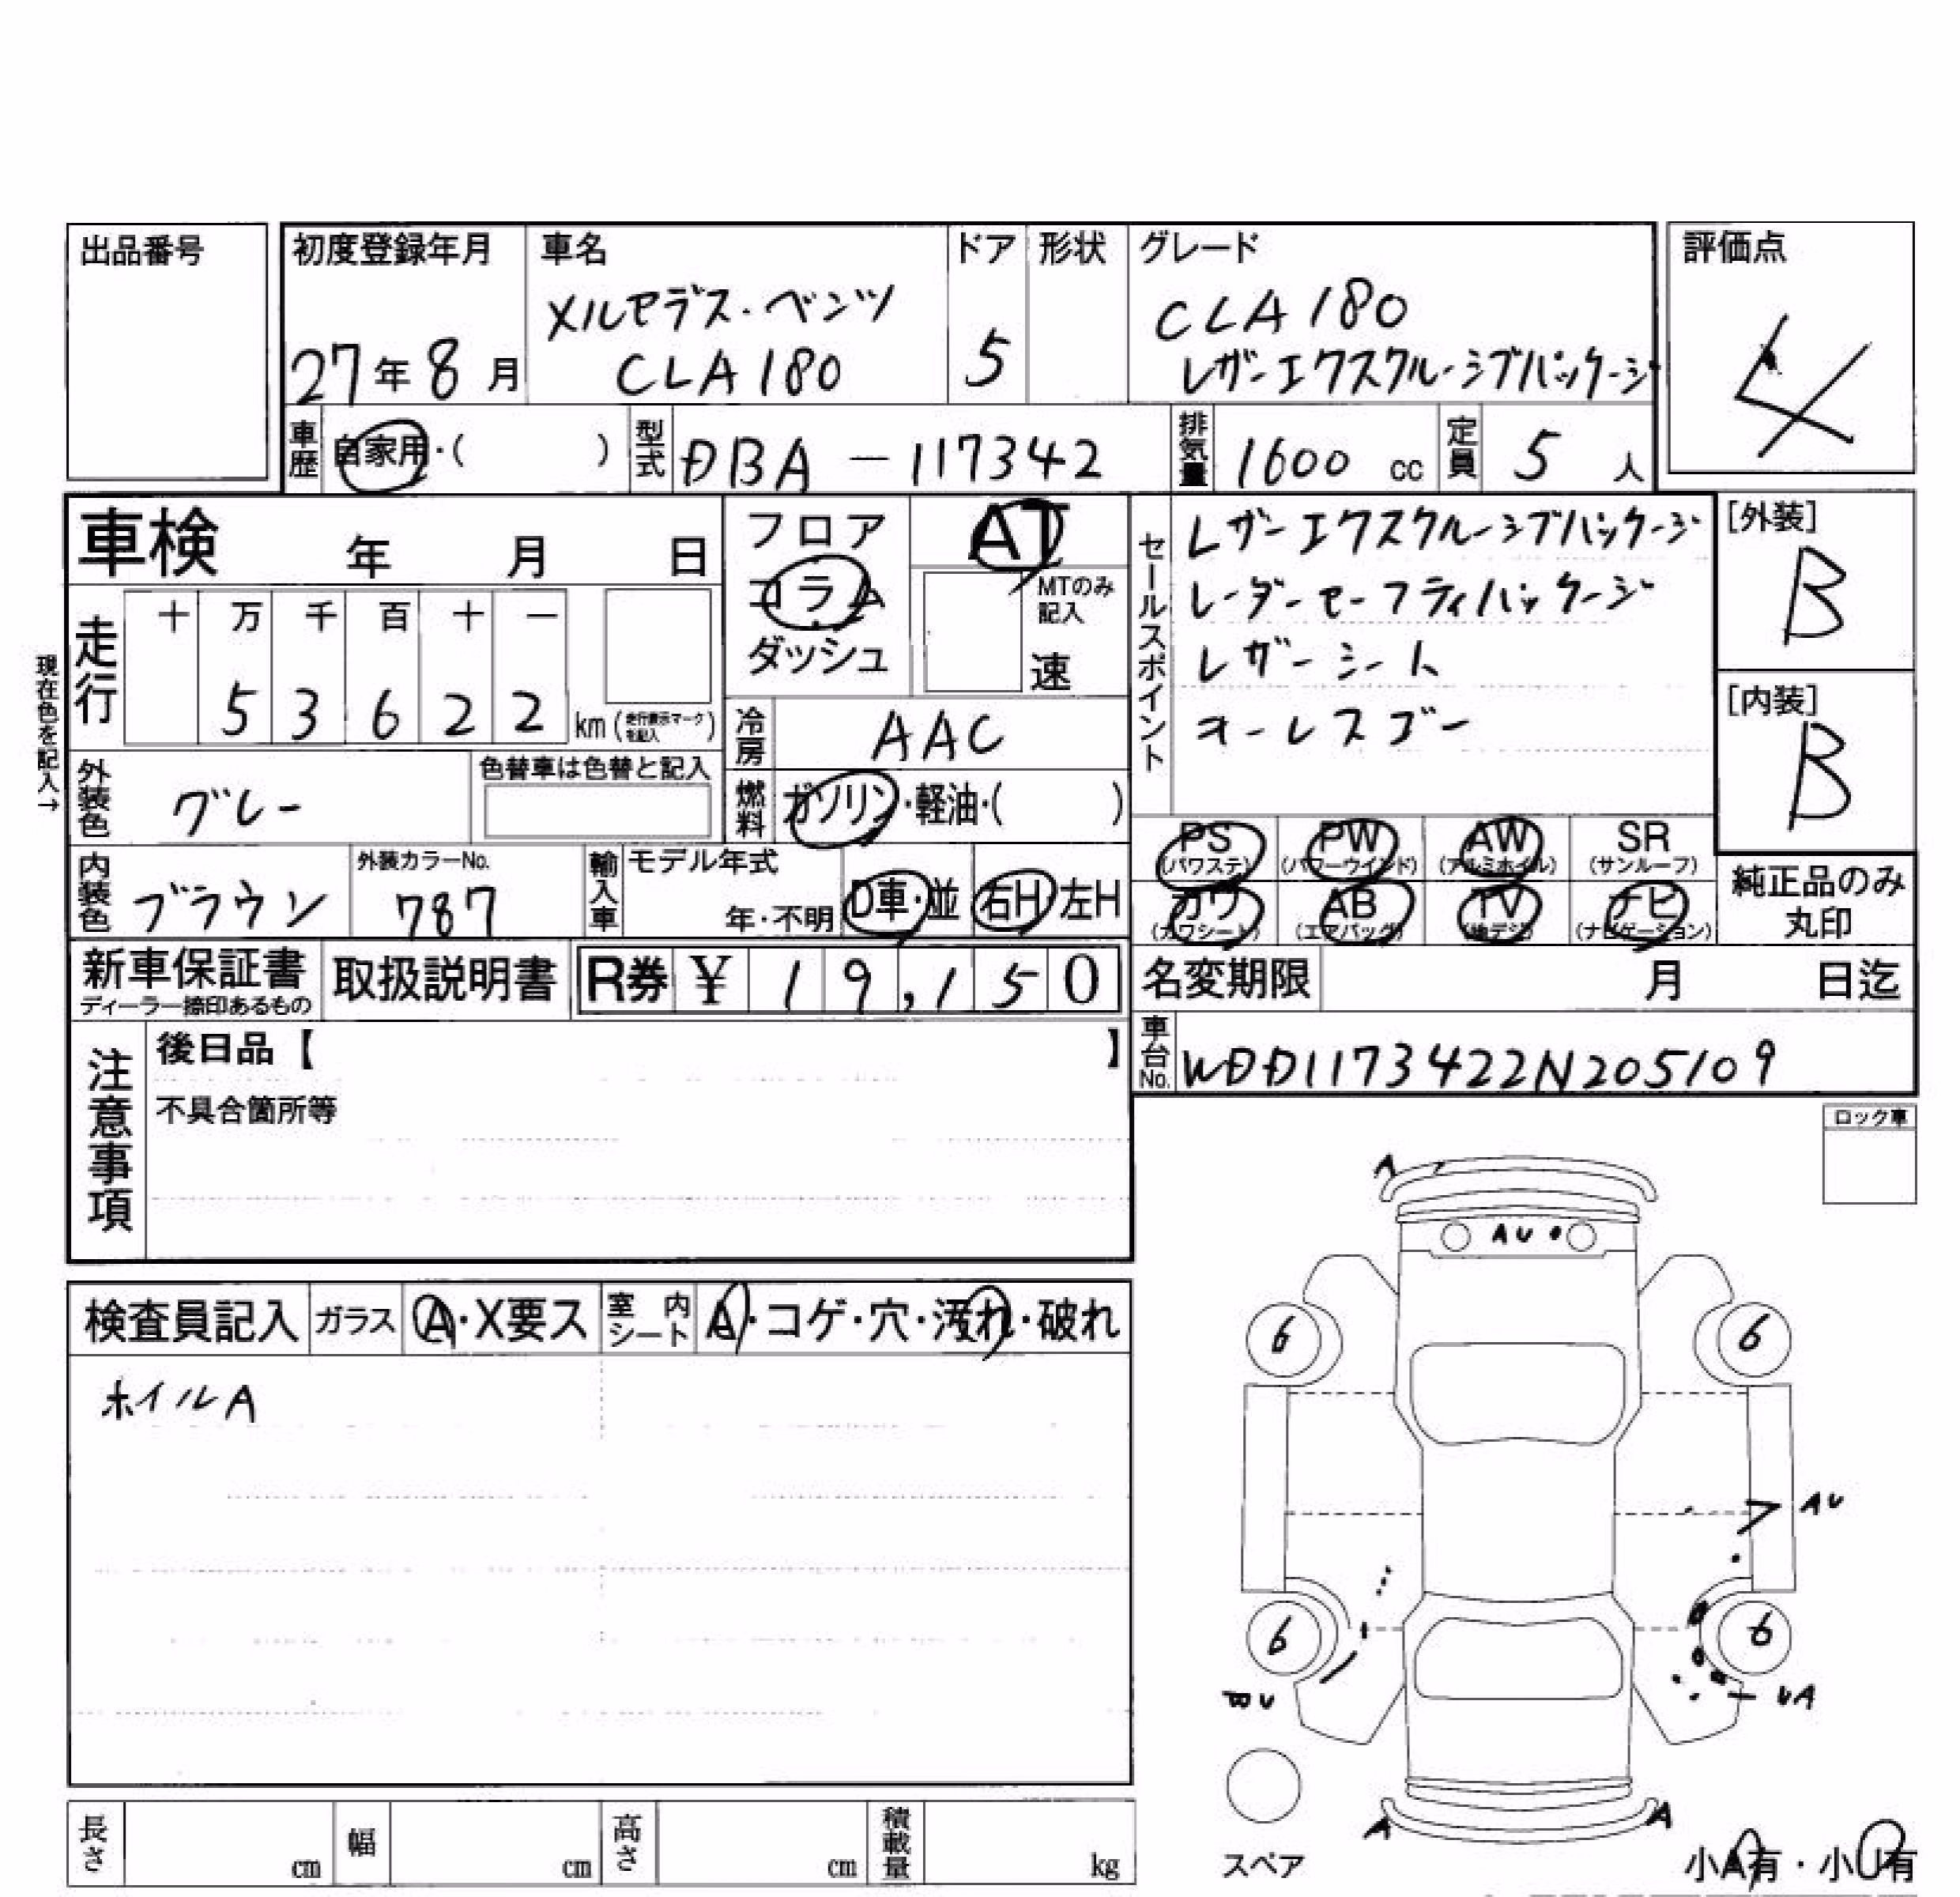 出品番号
初度登録年月
27年8月
車名
メルセデス・ベンツ
CLA180
ドア
5
形状
グレード
CLA180
レザーエクスクルーシブパッケージ
評価点
4
車歴
自家用・( )
型式
DBA-117342
排気量
1600 cc
定員
5 人
車検 年 月 日
フロア
コラム
ダッシュ
AT
MTのみ
記入
速
セールスポイント
レザーエクスクルーシブパッケージ
レーダーセーフティパッケージ
レザーシート
キーレスゴー
[外装]
B
[内装]
B
現在色を記入→
走行
十 万 千 百 十 一
5 3 6 2 2 km (走行表示マークを記入)
冷房
AAC
外装色
グレー
色替車は色替と記入
燃料
ガソリン・軽油・( )
PS
(パワステ)
PW
(パワーウインド)
AW
(アルミホイル)
SR
(サンルーフ)
カワ
(カワシート)
AB
(エアバッグ)
TV
(地デジ)
ナビ
(ナビゲーション)
純正品のみ
丸印
内装色
ブラウン
外装カラーNo.
787
輸入車
モデル年式
年・不明
D車・並
右H 左H
新車保証書
ディーラー捺印あるもの
取扱説明書
R券 ¥ 19,150
名変期限 月 日迄
注意事項
後日品【 】
不具合箇所等
車台No.
WDD1173422N205109
ロック車
検査員記入
ガラス
A・X要ス
室内
シート
A・コゲ・穴・汚れ・破れ
ホイルA
A
AU
6
6
AU
6
6
UA
A
A
スペア
小A有・小U有
長さ cm
幅 cm
高さ cm
積載量 kg